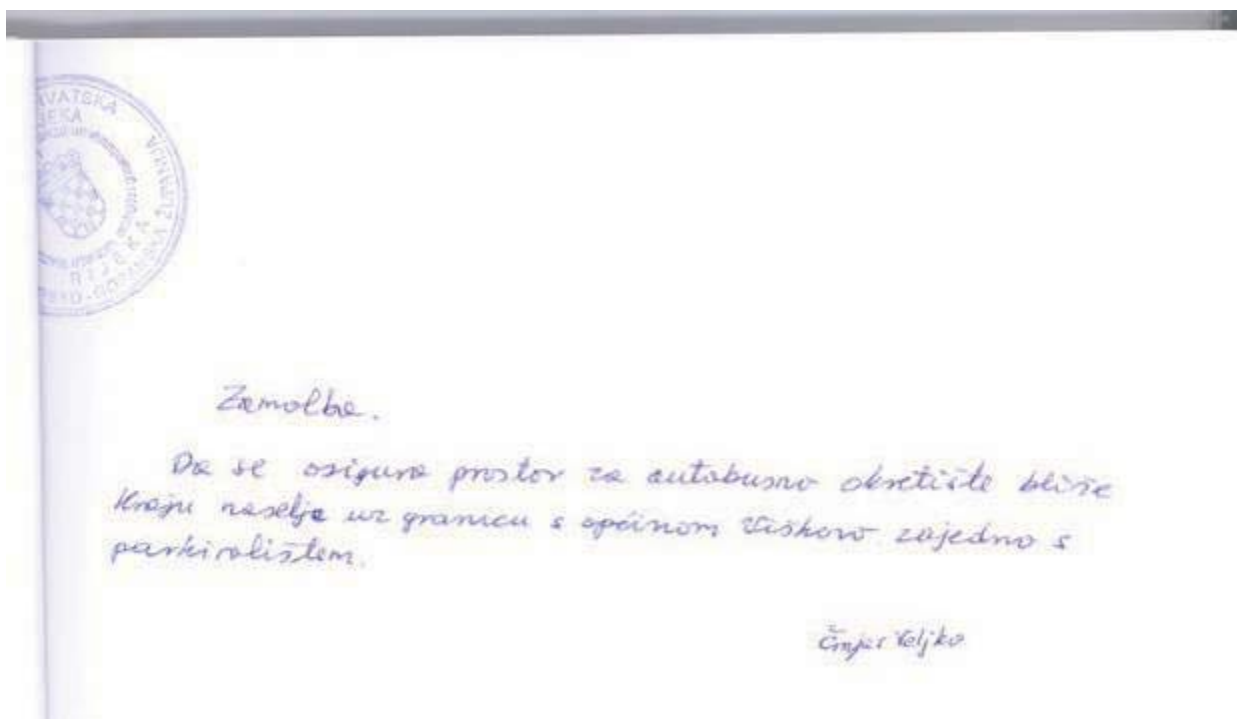 VATSKA
RIJEKA
ŽUPANIJA
Zamolba.
Da se osigura prostor za autobusno okretište bliže
kraju naselja uz granicu s općinom Viškovo zajedno s
parkiralištem.
Veljko